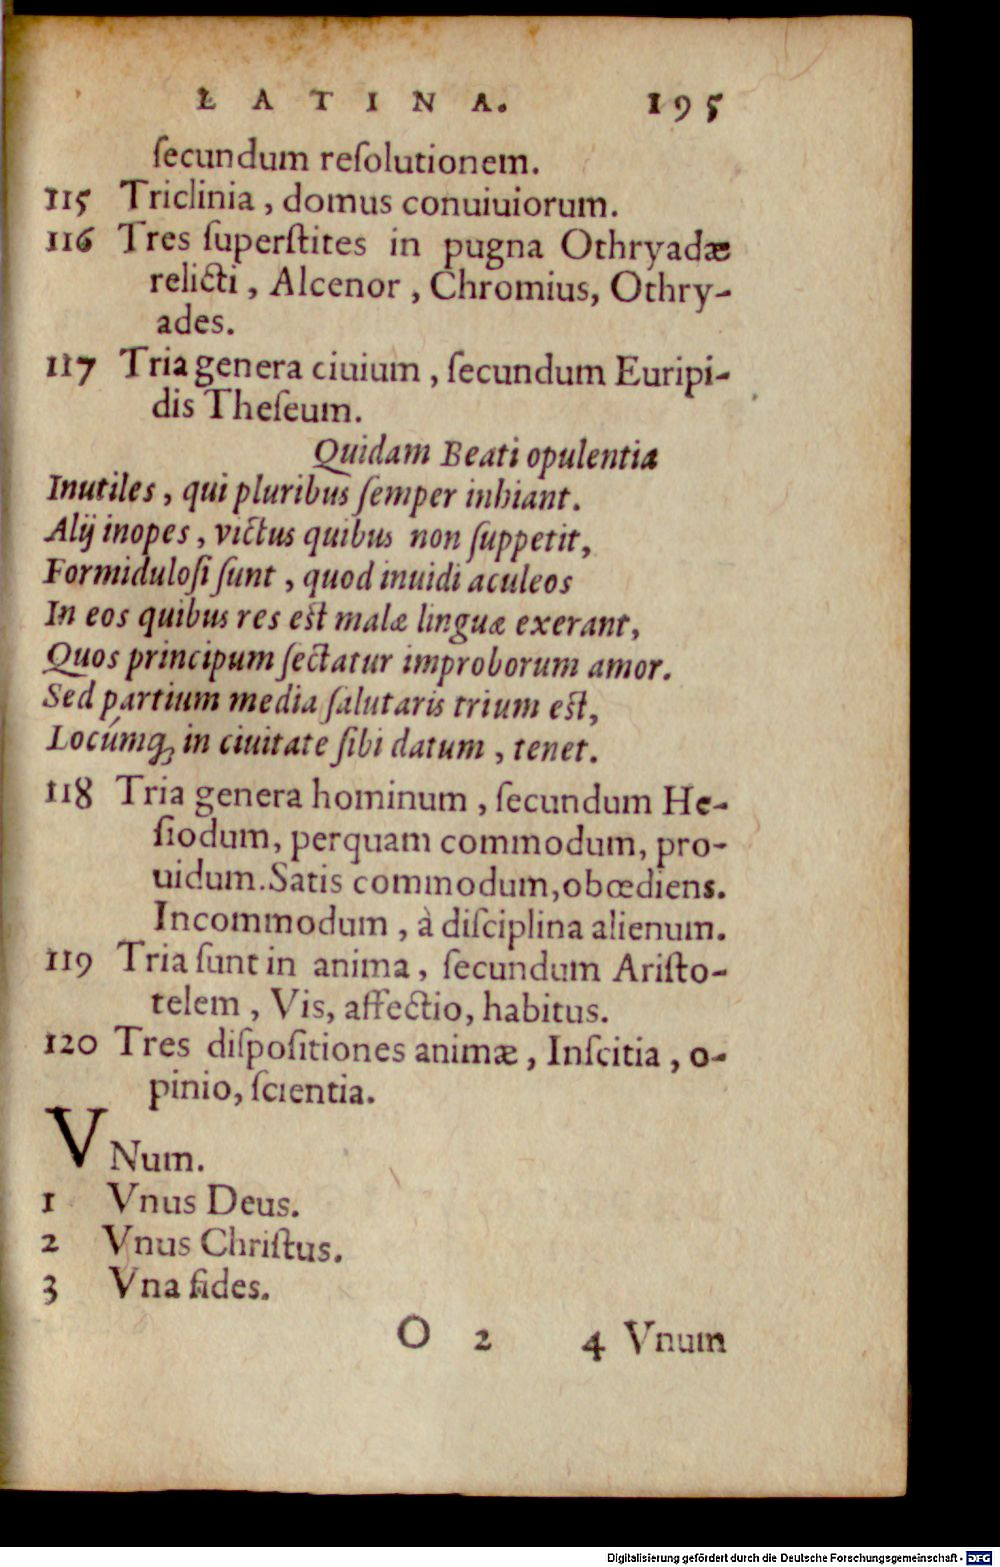 LATINA. 195
ſecundum reſolutionem.
115 Triclinia, domus conuiuiorum.
116 Tres ſuperſtites in pugna Othryadæ
relicti, Alcenor, Chromius, Othry-
ades.
117 Tria genera ciuium, ſecundum Euripi-
dis Theſeum.
Quidam Beati opulentia
Inutiles, qui pluribus ſemper inhiant.
Alij inopes, victus quibus non ſuppetit,
Formiduloſi ſunt, quod inuidi aculeos
In eos quibus res eſt malæ linguæ exerant,
Quos principum ſectatur improborum amor.
Sed partium media ſalutaris trium eſt,
Locúmq; in ciuitate ſibi datum, tenet.
118 Tria genera hominum, ſecundum He-
ſiodum, perquam commodum, pro-
uidum. Satis commodum, obœdiens.
Incommodum, à diſciplina alienum.
119 Tria ſunt in anima, ſecundum Ariſto-
telem, Vis, affectio, habitus.
120 Tres diſpoſitiones animæ, Inſcitia, o-
pinio, ſcientia.
VNum.
1 Vnus Deus.
2 Vnus Chriſtus.
3 Vna fides.
O 2 4 Vnum
Digitalisierung gefördert durch die Deutsche Forschungsgemeinschaft - DFG